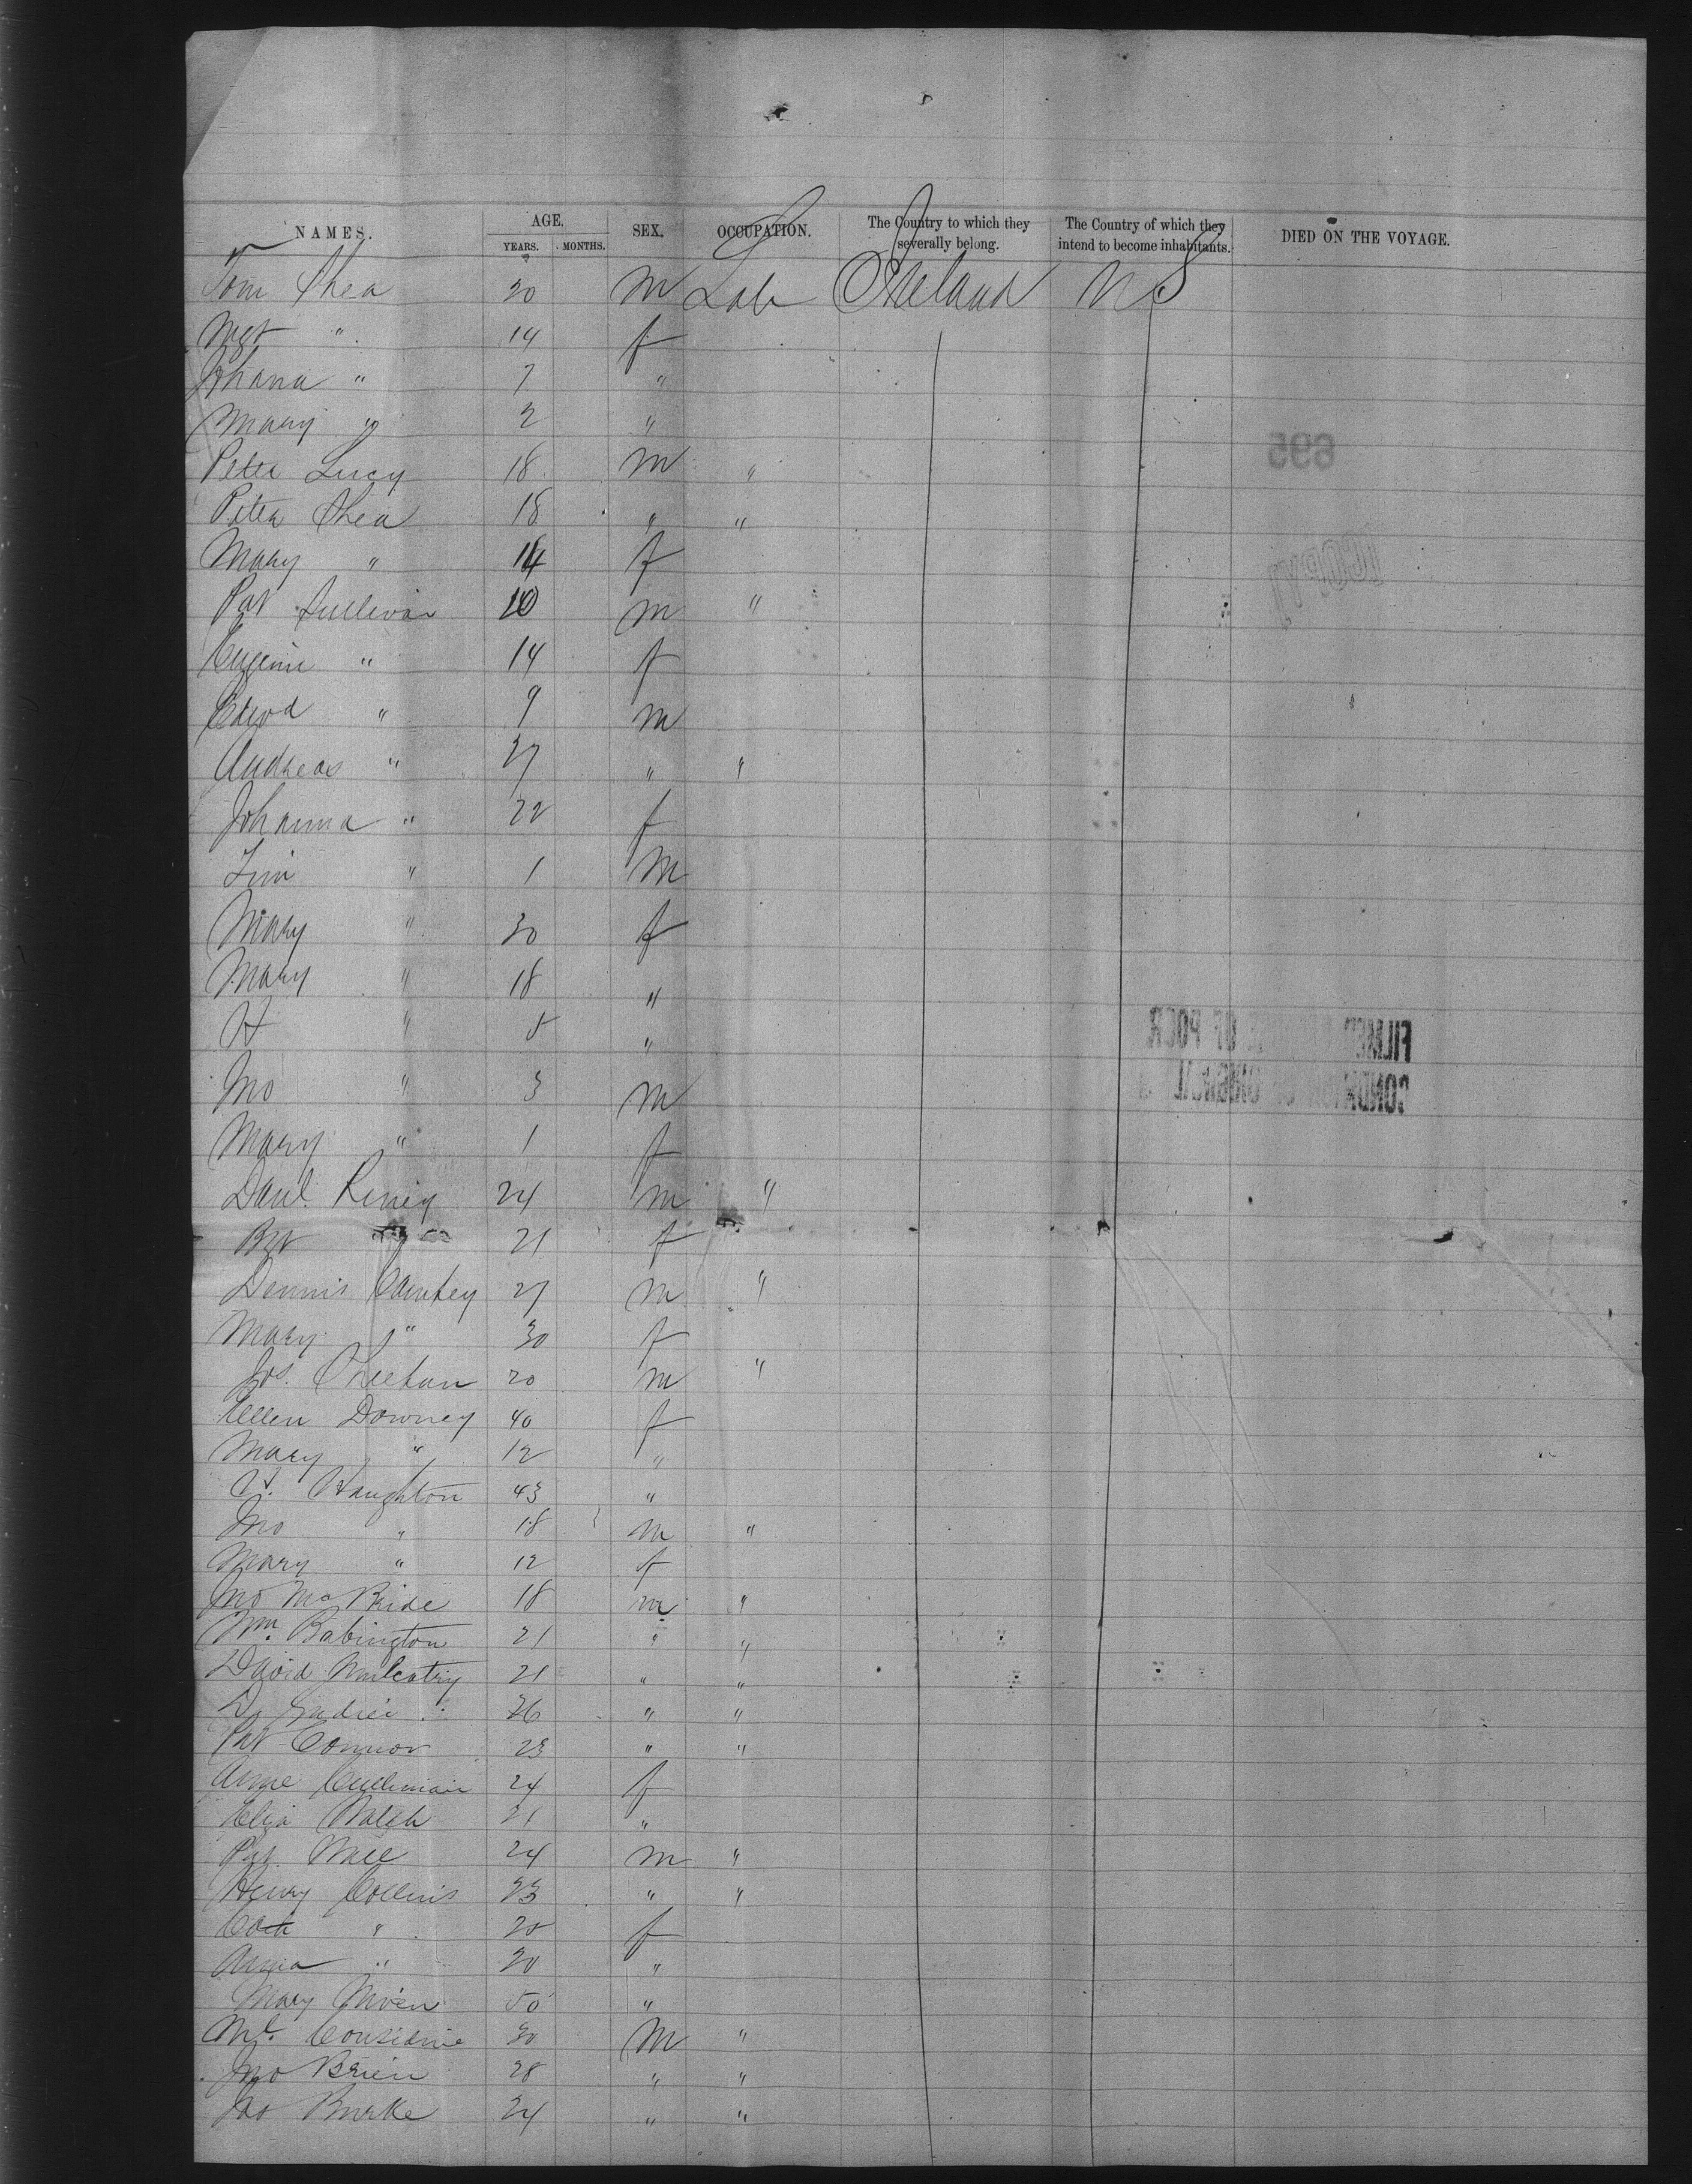 NAMES. AGE. SEX. OCCUPATION. The Country to which they severally belong. The Country of which they intend to become inhabitants. DIED ON THE VOYAGE.
YEARS. MONTHS.
Tom Shea 20 m Lab Ireland US
Mgt " 14 f
Johana " 7 "
Mary " 2 "
Peter Lucy 18 m "
Peter Shea 18 " "
Mary " 14 f
Pat Sullivan 10 m "
Eugenie " 14 f
Edwd " 9 m
Andreas " 27 " "
Johanna " 22 f
Tim " 1 m
Mary " 30 f
Mary " 18 "
H " 5 "
Jno " 3 m
Mary " 1 f
Danl. 24 m "
Bgt " 21 f
Dennis 27 m "
Mary " 30 f
Jos. Sheehan 20 m "
Ellen Downey 40 f
Mary " 12 "
H. Haughton 43 "
Jno " 18 m "
Mary " 12 f
Jno McBride 18 m "
Wm. Babington 21 " "
David 21 " "
D. 26 " "
Pat Connor 23 " "
Annie Cullinain 24 f
Eliza Walsh 21 "
Pat 24 m "
Henry Collins 23 " "
Cath " 20 f
Anna " 20 "
Mary 50 "
Ml. Considine 30 m "
Jno Brien 28 " "
Jno Burke 24 " "
695
COPY